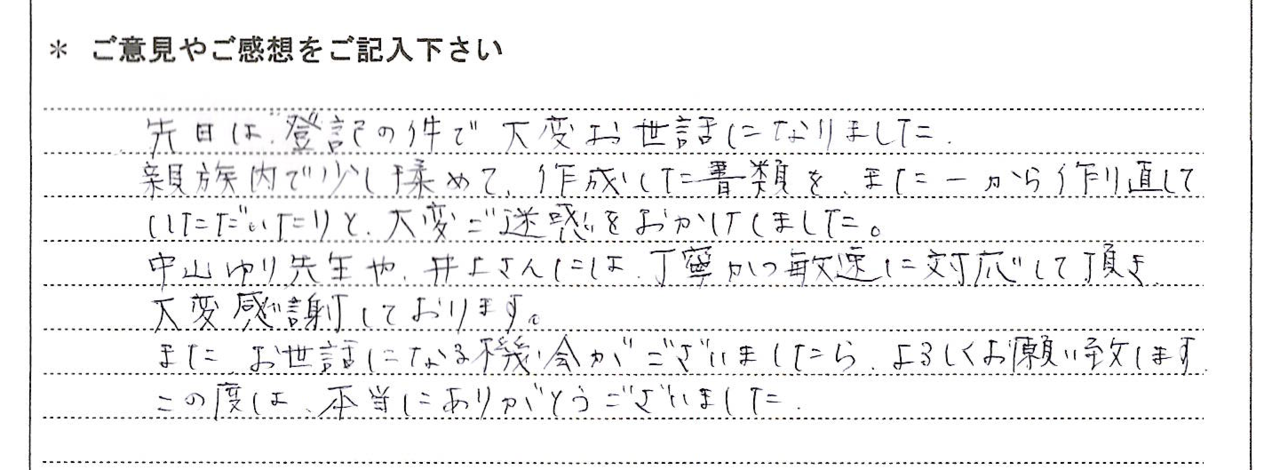 * ご意見やご感想をご記入下さい
先日は、登記の件で大変お世話になりました。
親族内で少し揉めて、作成した書類を、また一から作り直して
いただいたりと、大変ご迷惑をおかけしました。
中山ゆり先生や、井上さんには、丁寧かつ敏速に対応して頂き
大変感謝しております。
また、お世話になる機会がございましたら、よろしくお願い致します
この度は、本当にありがとうございました。